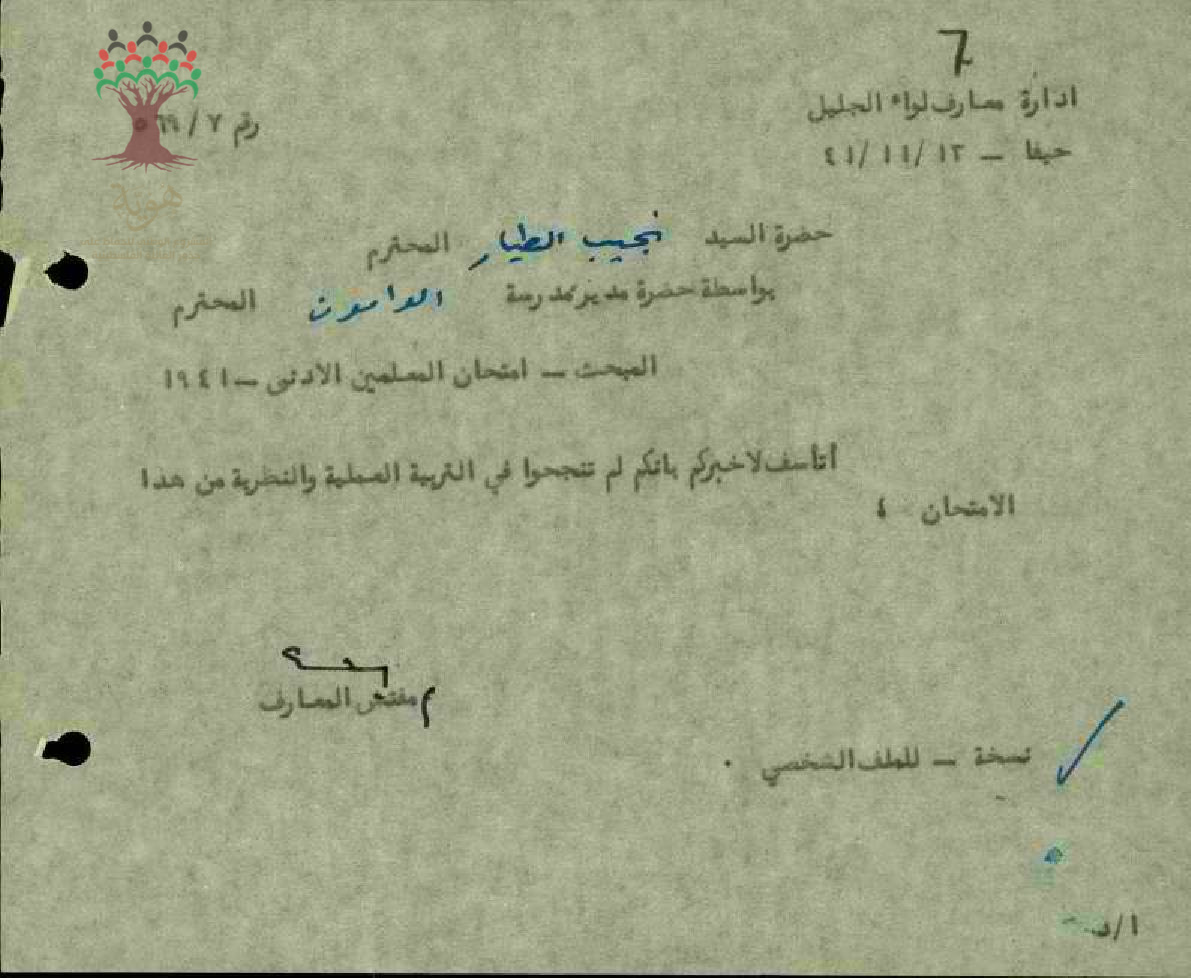 7
ادارة معارف لواء الجليل
رقم ٧ / ٦٩٥
حيفا — ١٣ /١١ /٤١
هوية
حضرة السيد نجيب الطيار المحترم
بواسطة حضرة مدير مدرسة الدامون المحترم
المبحث — امتحان المعلمين الادنى — ١٩٤١
أتأسف لاخبركم بانكم لم تنجحوا في التربية العملية والنظرية من هذا
الامتحان ؛
م مفتش المعارف
نسخة — للملف الشخصي .